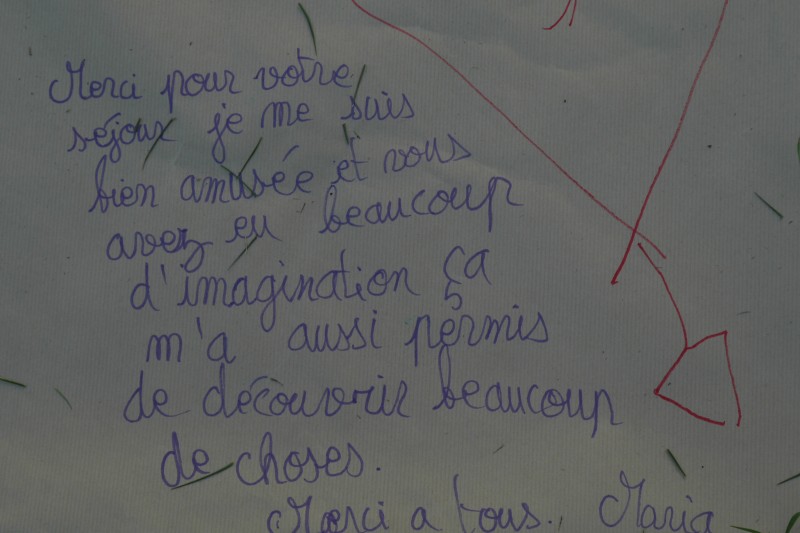 Merci pour votre
séjour je me suis
bien amusée et vous
avez eu beaucoup
d'imagination ça
m'a aussi permis
de découvrir beaucoup
de choses.
Merci a tous. Maria